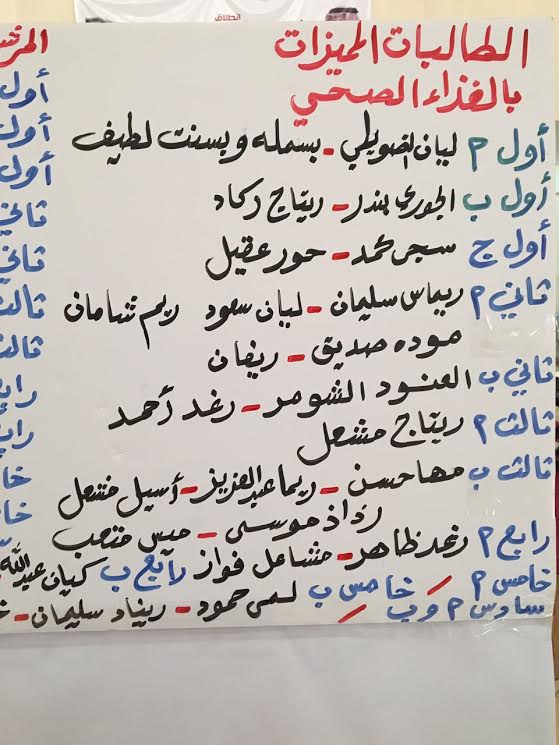 انطلاق
الطالبات المميزات
بالغذاء الصحي
أول م ليان الضويطي - بسمله وبسنت لطيف
أول ب الجوري بندر - ريتاج ركاد
أول ج سجى محمد - حور عقيل
ثاني م ريماس سليمان - ليان سعود ريم شامان
موده صديق - ريفان
ثاني ب العنود الشومر - رغد أحمد
ثالث م ريتاج مشعل
ثالث ب مها حسن - ريما عبدالعزيز - أسيل مشعل
رذاذ موسى - ميس متعب
رابع م رغد ظاهر - مشاعل فواز رابع ب كيان عبدالله
خامس م خامس ب لمى حمود - ريناد سليمان -
سادس م وب
أول
أول
أول
ثاني
ثاني
ثالث
ثالث